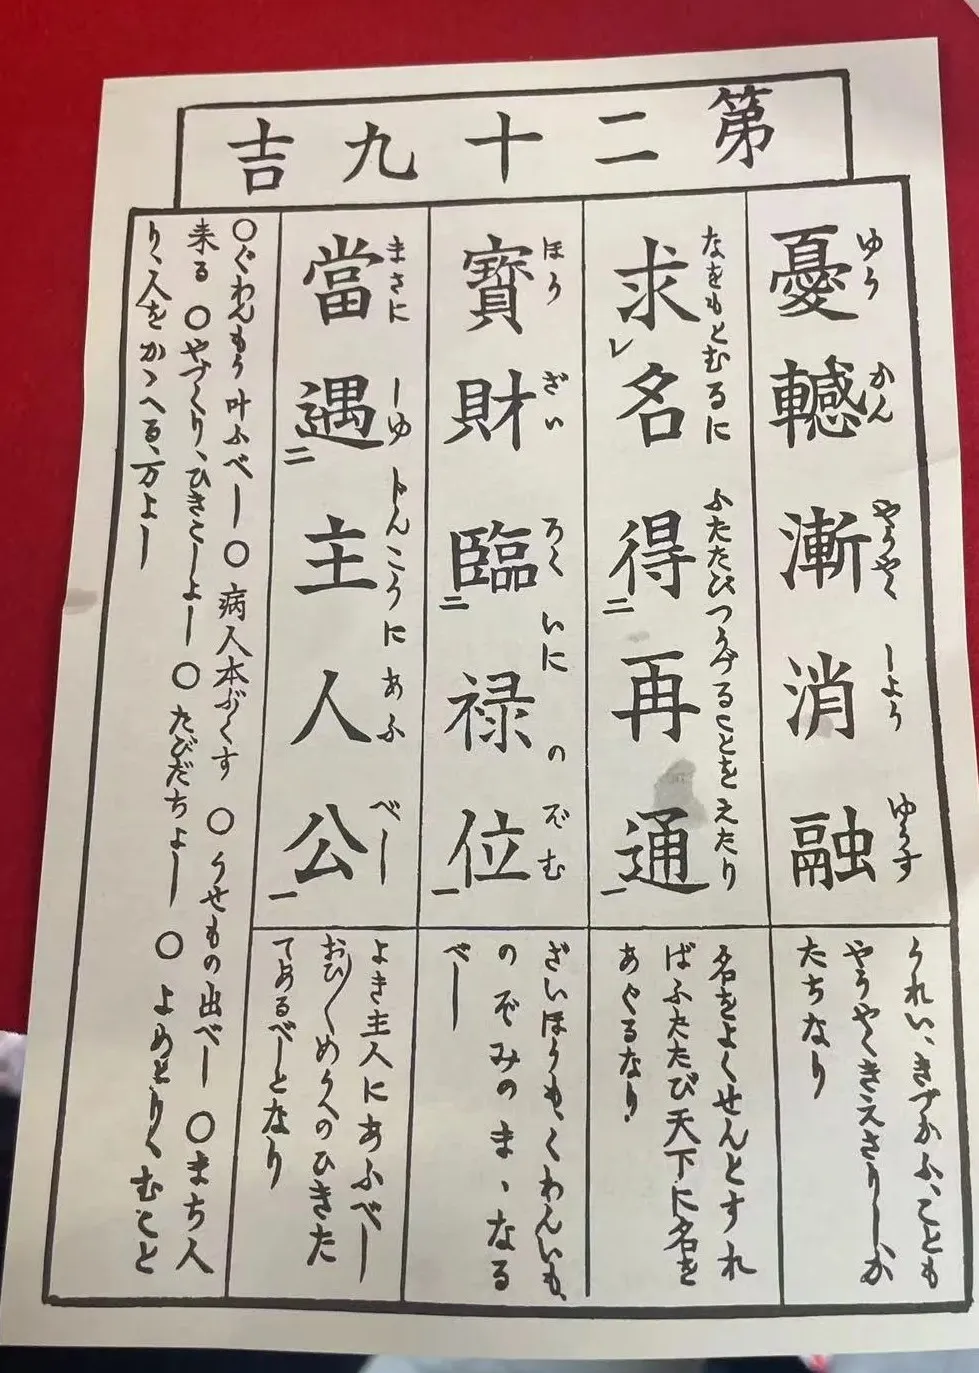 第二十九吉
憂轗漸消融
ゆうかんやうやくしようゆうす
うれい、きづかふ、ことも
やうやくきえさりしか
たちなり
求レ名得二再通一
なをもとむるにふたたびつうづることをえたり
名をよくせんとすれ
ばふたたび天下に名を
あぐるなり
寳財臨二禄位一
ほうざいろくいにのぞむ
ざいほうも、くわんいも、
のぞみのまゝなる
べし
當遇二主人公一
まさにしゆじんこうにあふべし
よき主人にあふべし
おひ〱めうへのひきた
てあるべしとなり
〇ぐわんもう叶ふべし〇病人本ぶくす〇うせもの出べし〇まち人
来る〇やづくり、ひきこしよし〇たびだちよし〇よめとりむこと
り、人をかゝへる、万よし